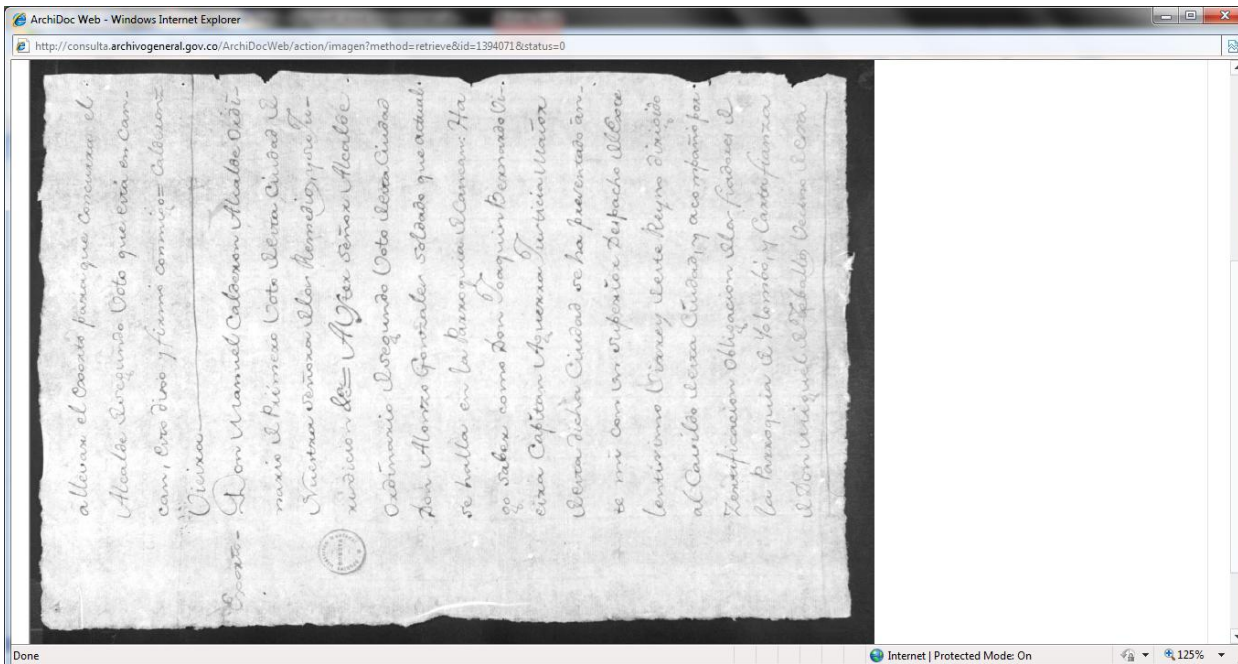 ArchiDoc Web - Windows Internet Explorer
http://consulta.archivogeneral.gov.co/ArchiDocWeb/action/imagen?method=retrieve&id=1394071&status=0
a llevar el Exorto para que Concurra el
Alcalde de segundo Voto que está en Can-
can, esto dixo y firmó conmigo= Calderon=
Vieira
Exorto- Don Manuel Calderon Alcalde Ordi-
nario de Primero Voto de esta Ciudad de
Nuestra Señora de los Remedios, y su Ju-
risdicion &c= Al Señor Alcalde
Ordinario de segundo Voto de esta Ciudad
Don Alonso Gonzales Soldado que actual.
se halla en la Parroquia de Cancan: Ha
go saber como Don Joaquin Bernardo Vi-
eira Capitan Aguerra Justicia Mayor
de esta dicha Ciudad se ha presentado an-
te mi con un superior Despacho del Exce
lentisimo Virrey de este Reyno dirigido
al Cavildo de esta Ciudad, y acompaño por
Zertificacion Obligacion de los fiadores de
la Parroquia de Yolombó, y Carta fianza
de Don Miguel de Zeballos Vecino de esa
Done
Internet | Protected Mode: On
125%